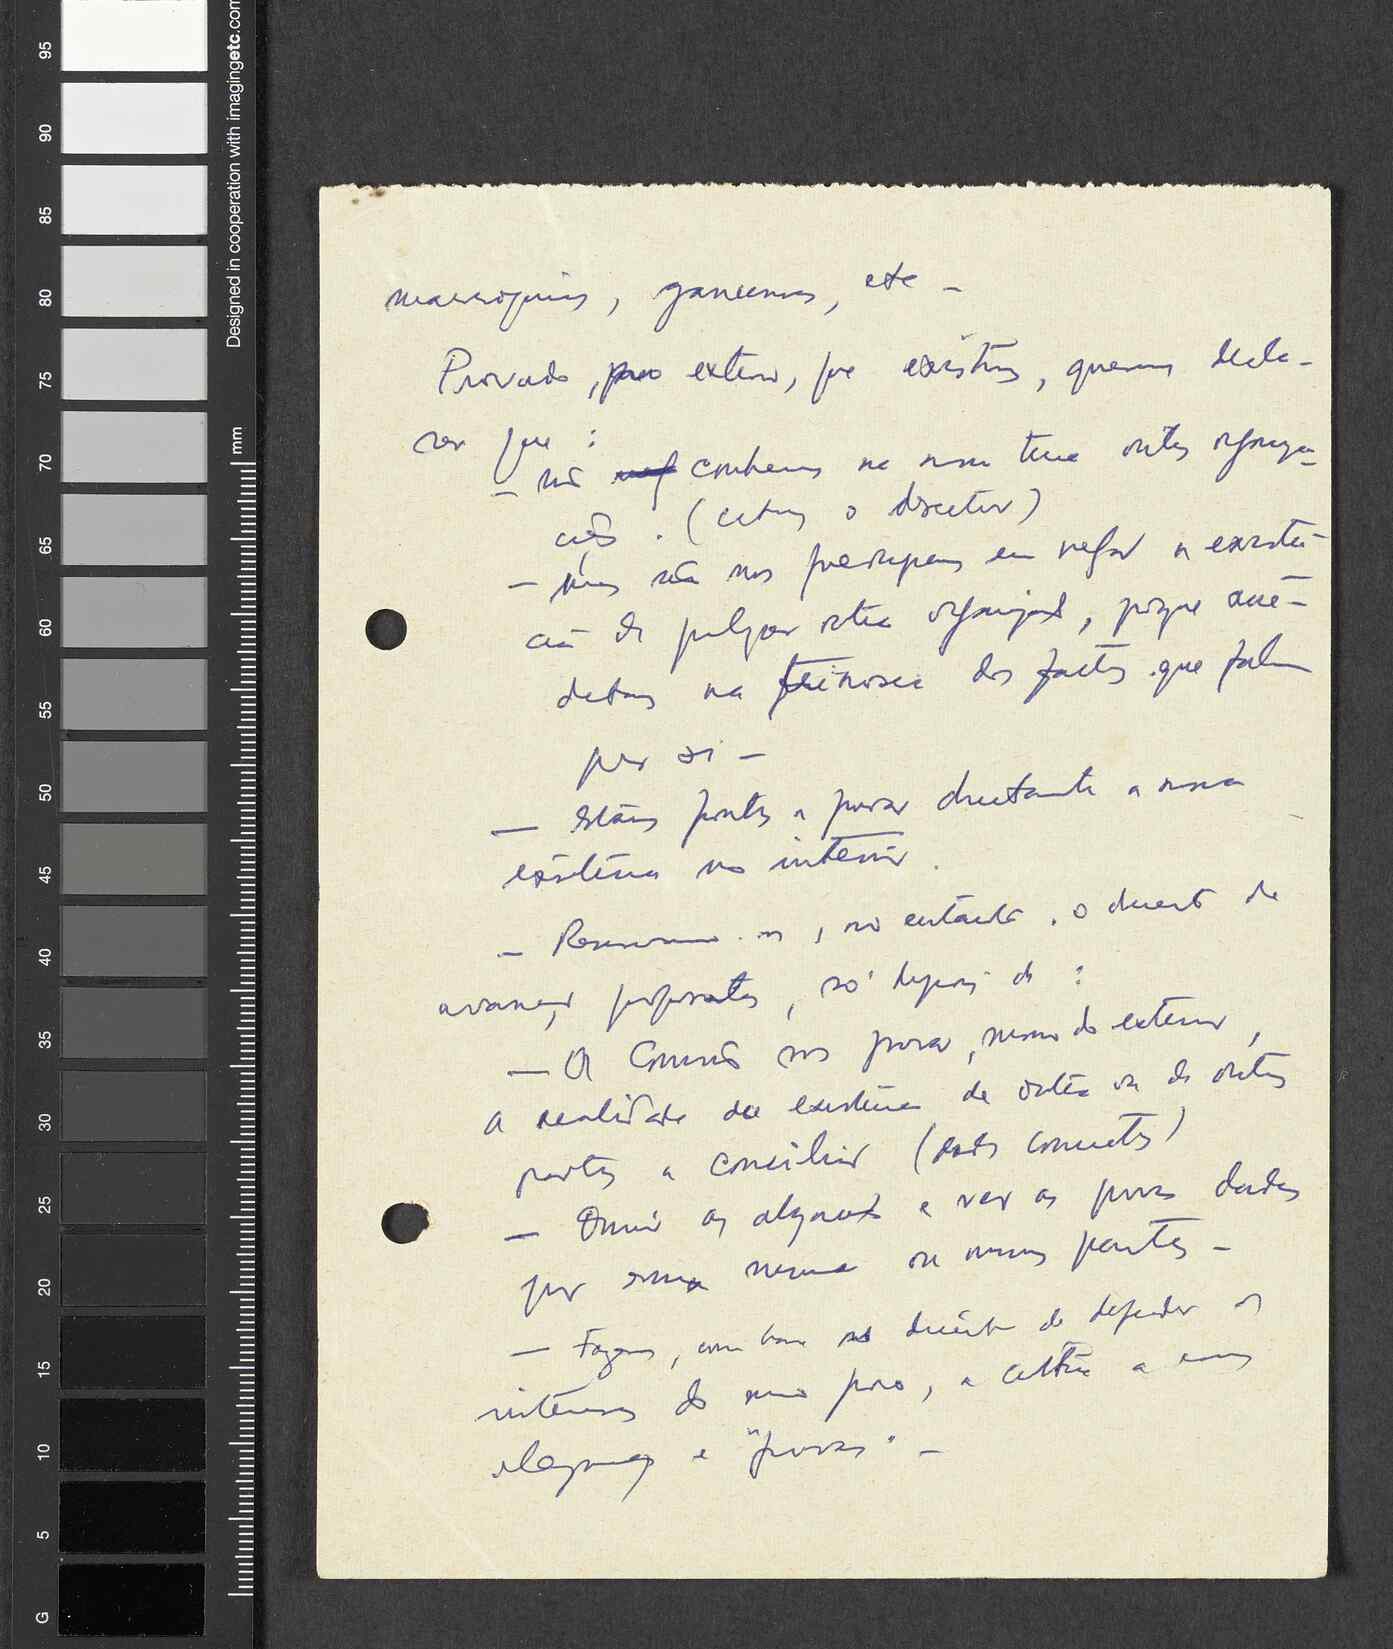 95
90
85
80
75
70
65
60
55
50
45
40
35
30
25
20
15
10
5
G
Designed in cooperation with imagingetc.com
mm
marroquinos, ganeenses, etc –
Provado, exterior, que existimos, queremos decla-
rar que :
– não conhecemos na nossa terra outras organiza-
ções . ( o director)
– mas não nos preocupamos em negar a existên-
cia de qualquer outra organização, porque acre-
ditamos na dos factos que falam
por si –
– Estamos prontos a provar directamente a nossa
existência no interior .
– Reservamo-nos, no entanto, o direito de
avançar propostas, só depois de :
– A Comissão nos provar, mesmo do exterior,
a realidade da existência de outra ou de outras
partes a conciliar (dados concretos)
– Ouvir as alegações e ver as provas dadas
por essa mesma ou mesmas partes –
– Fazemos, com base no direito de defender os
interesses do nosso povo, a crítica a essas
alegações e "provas" –